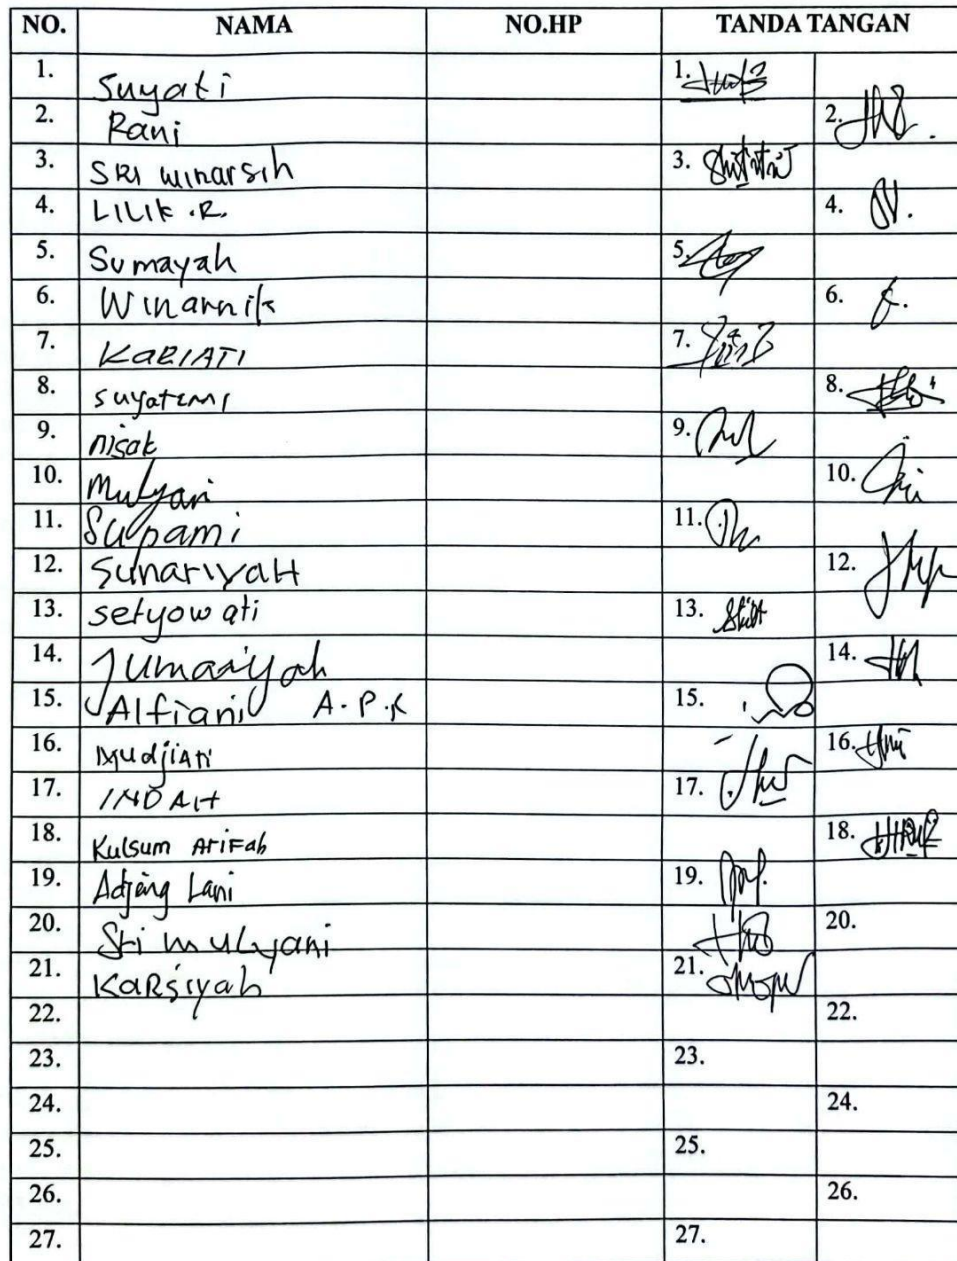 NO. NAMA NO.HP TANDA TANGAN
1. Suyati 1.
2. Rani 2.
3. SRI winarsih 3.
4. LILIK .R. 4.
5. Sumayah 5.
6. Winarnik 6.
7. KARIATI 7.
8. suyatemi 8.
9. nisak 9.
10. Mulyani 10.
11. Supami 11.
12. SunariyaH 12.
13. setyowati 13.
14. Jumaaiyah 14.
15. Alfiani A.P.K 15.
16. Mudjiati 16.
17. INDAH 17.
18. Kulsum Arifah 18.
19. Adjeng Lani 19.
20. Sri mulyani 20.
21. KaRsiyah 21.
22. 22.
23. 23.
24. 24.
25. 25.
26. 26.
27. 27.